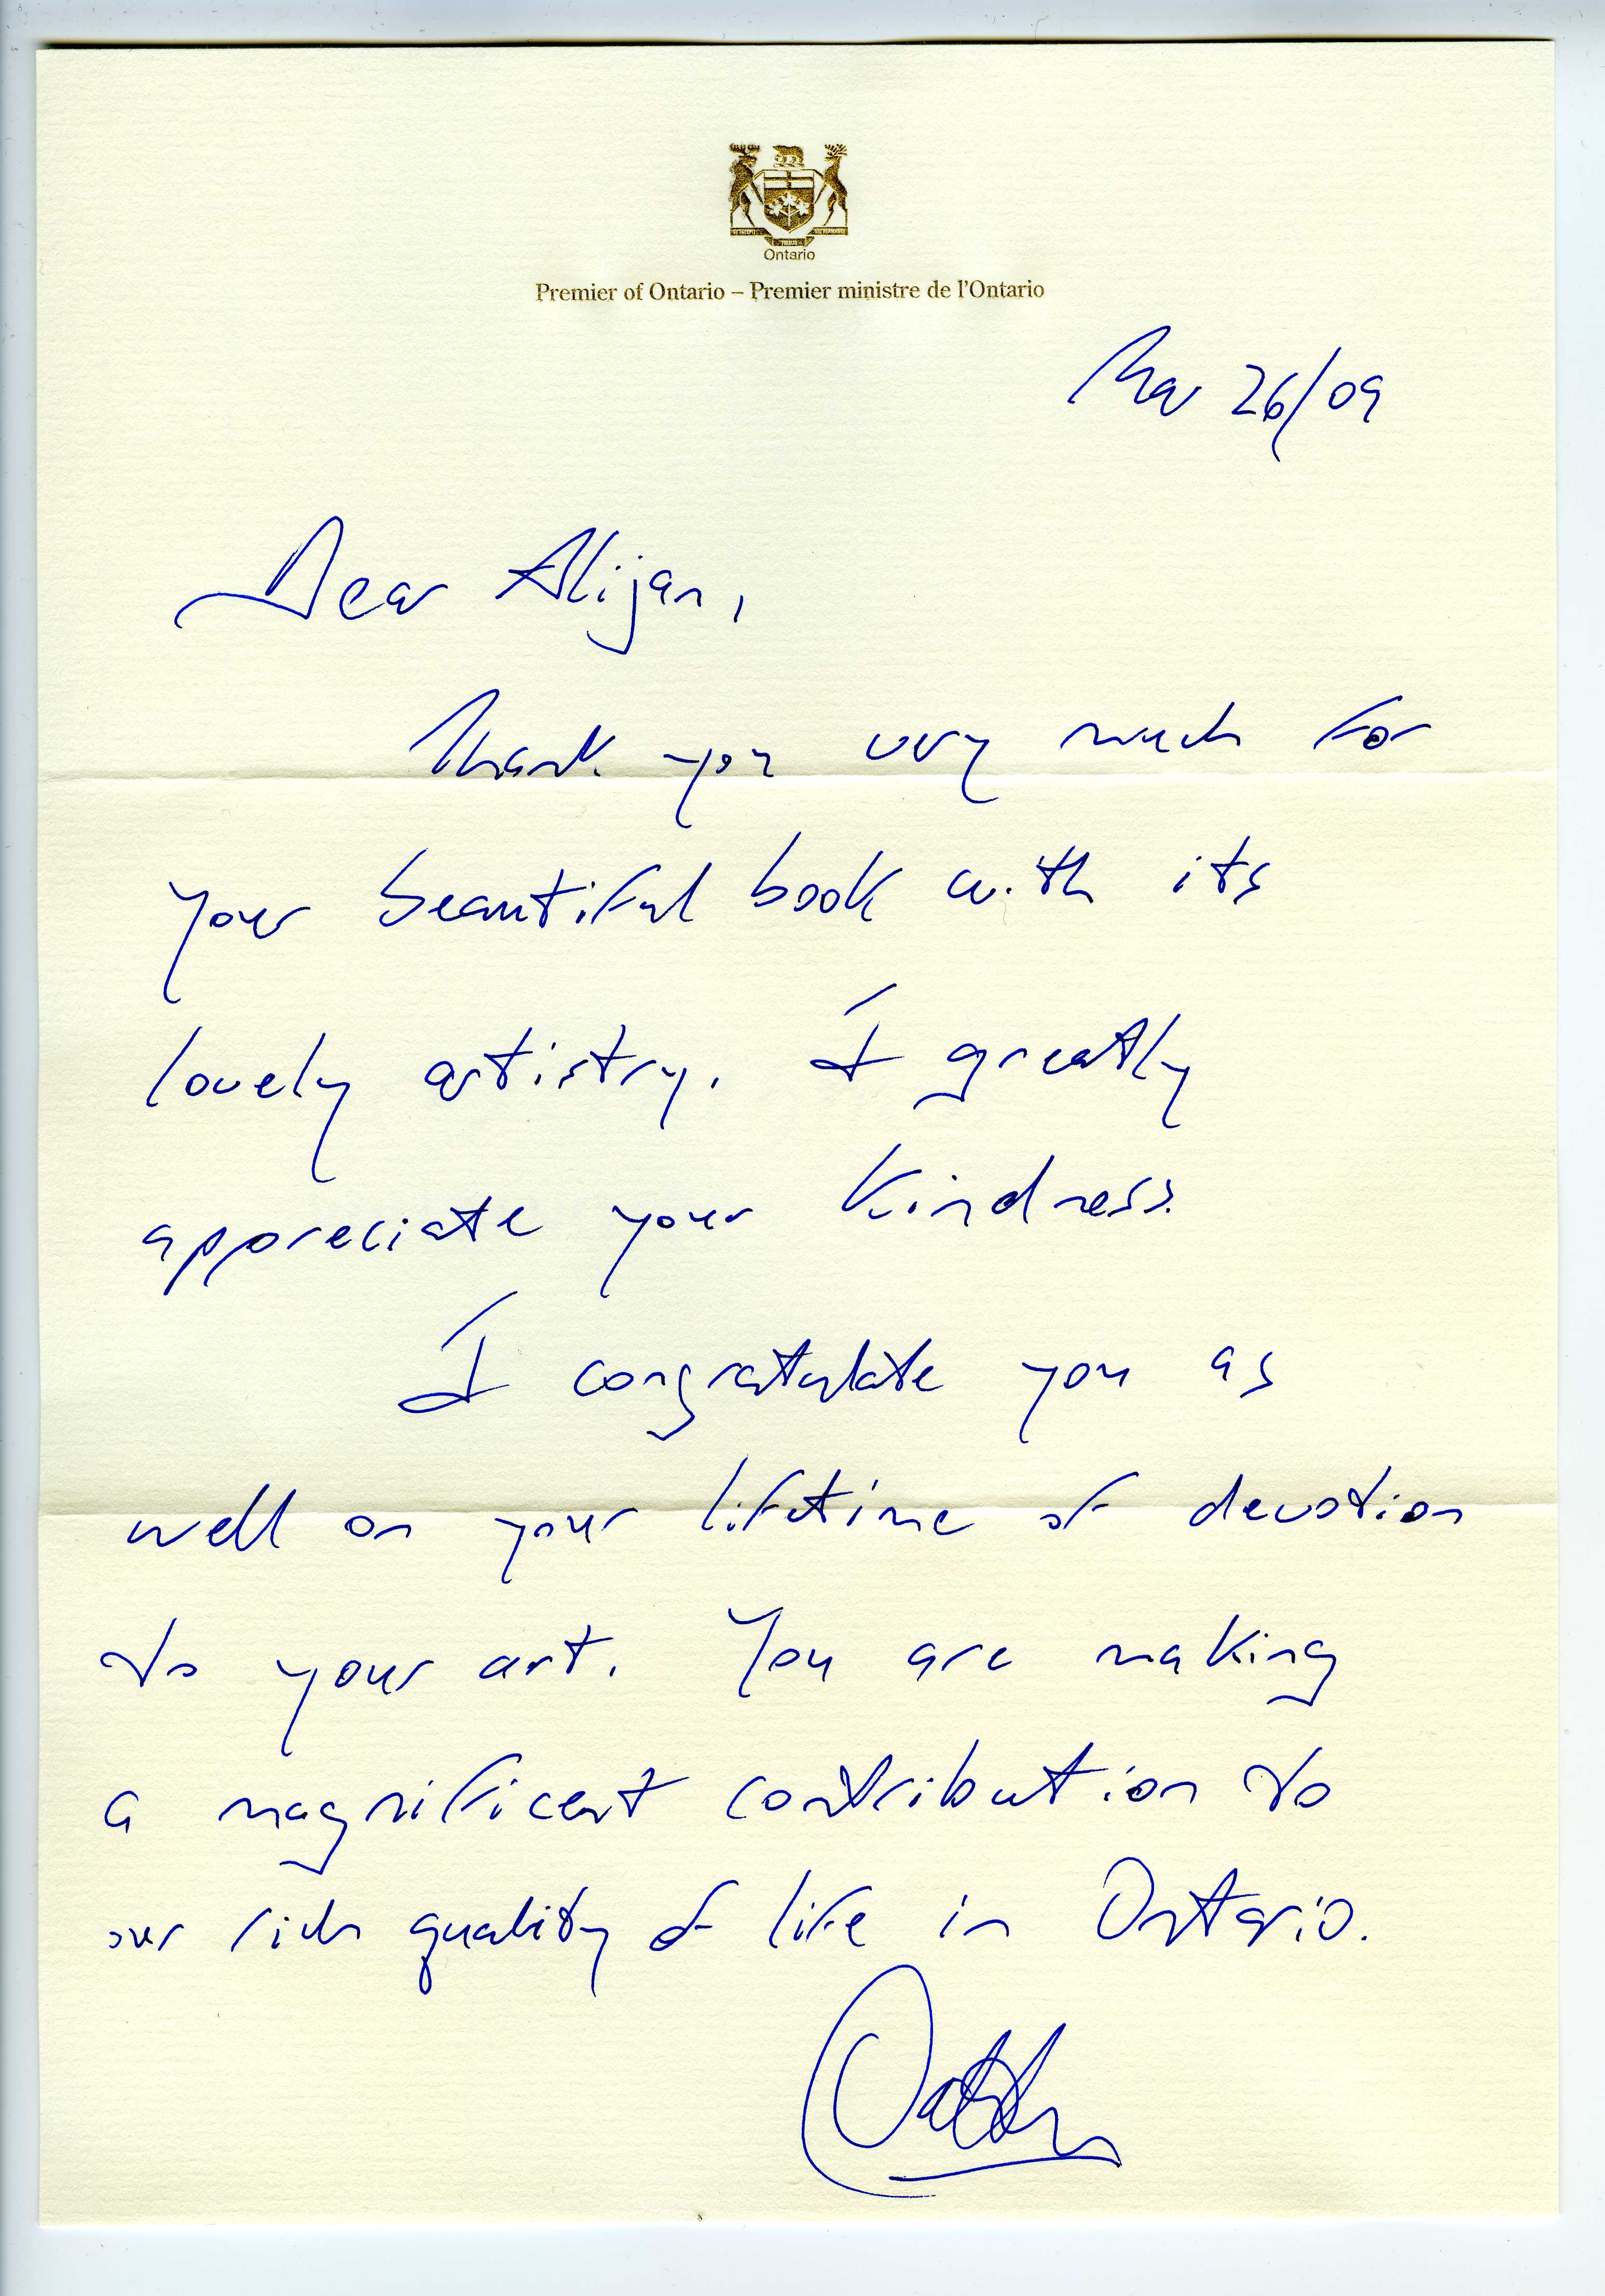 Ontario
Premier of Ontario – Premier ministre de l'Ontario
Mar 26/09
Dear Alijan,
Thank you very much for
your beautiful book with its
lovely artistry. I greatly
appreciate your kindness.
I congratulate you as
well on your lifetime of devotion
to your art. You are making
a magnificent contribution to
our rich quality of life in Ontario.